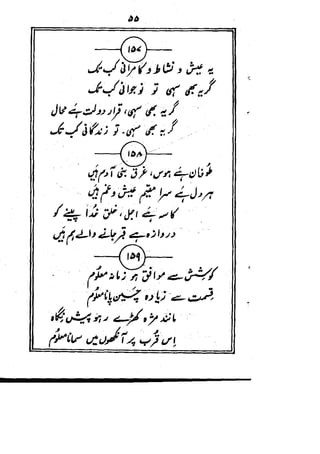 ۵۵
۱۵۷
یہ عیش و نشاط و کامرانی کب تک
گر یہ بھی سہی تو نوجوانی کب تک
گر یہ بھی سہی، قرار دولت ہے محال
گر یہ بھی سہی۔ تو زندگانی کب تک
۱۵۸
طوفان ہے ہوس، غرق بنی آدم ہیں
ہر دل ہے سرا مقیم عیش و غم ہیں
کاسہ ہے اجل، خلق خدا پینے کو
دروازہ ہے قبر جانے والے ہم ہیں
۱۵۹
کوشش سے موافق ہو زمانہ معلوم
قسمت سے زیادہ چین پانا معلوم
مانند مژہ کھڑے رہو پیش نگاہ
اِس قرب پر آنکھوں میں سمانا معلوم